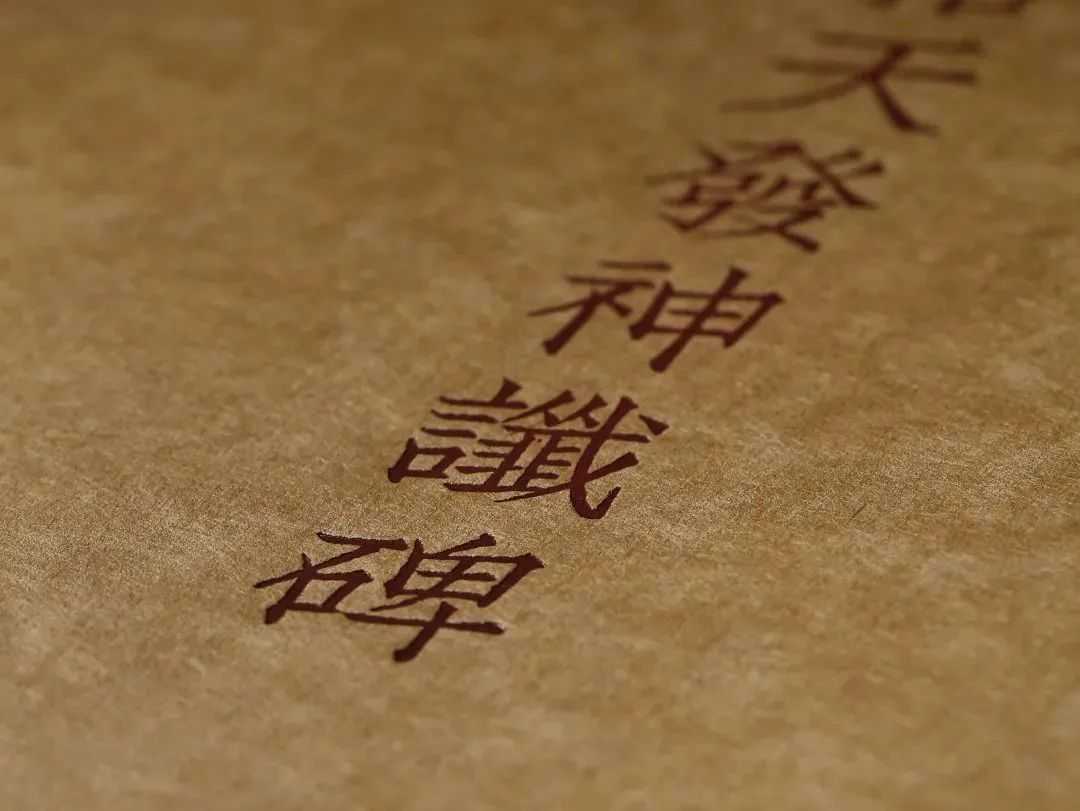 天發神讖碑